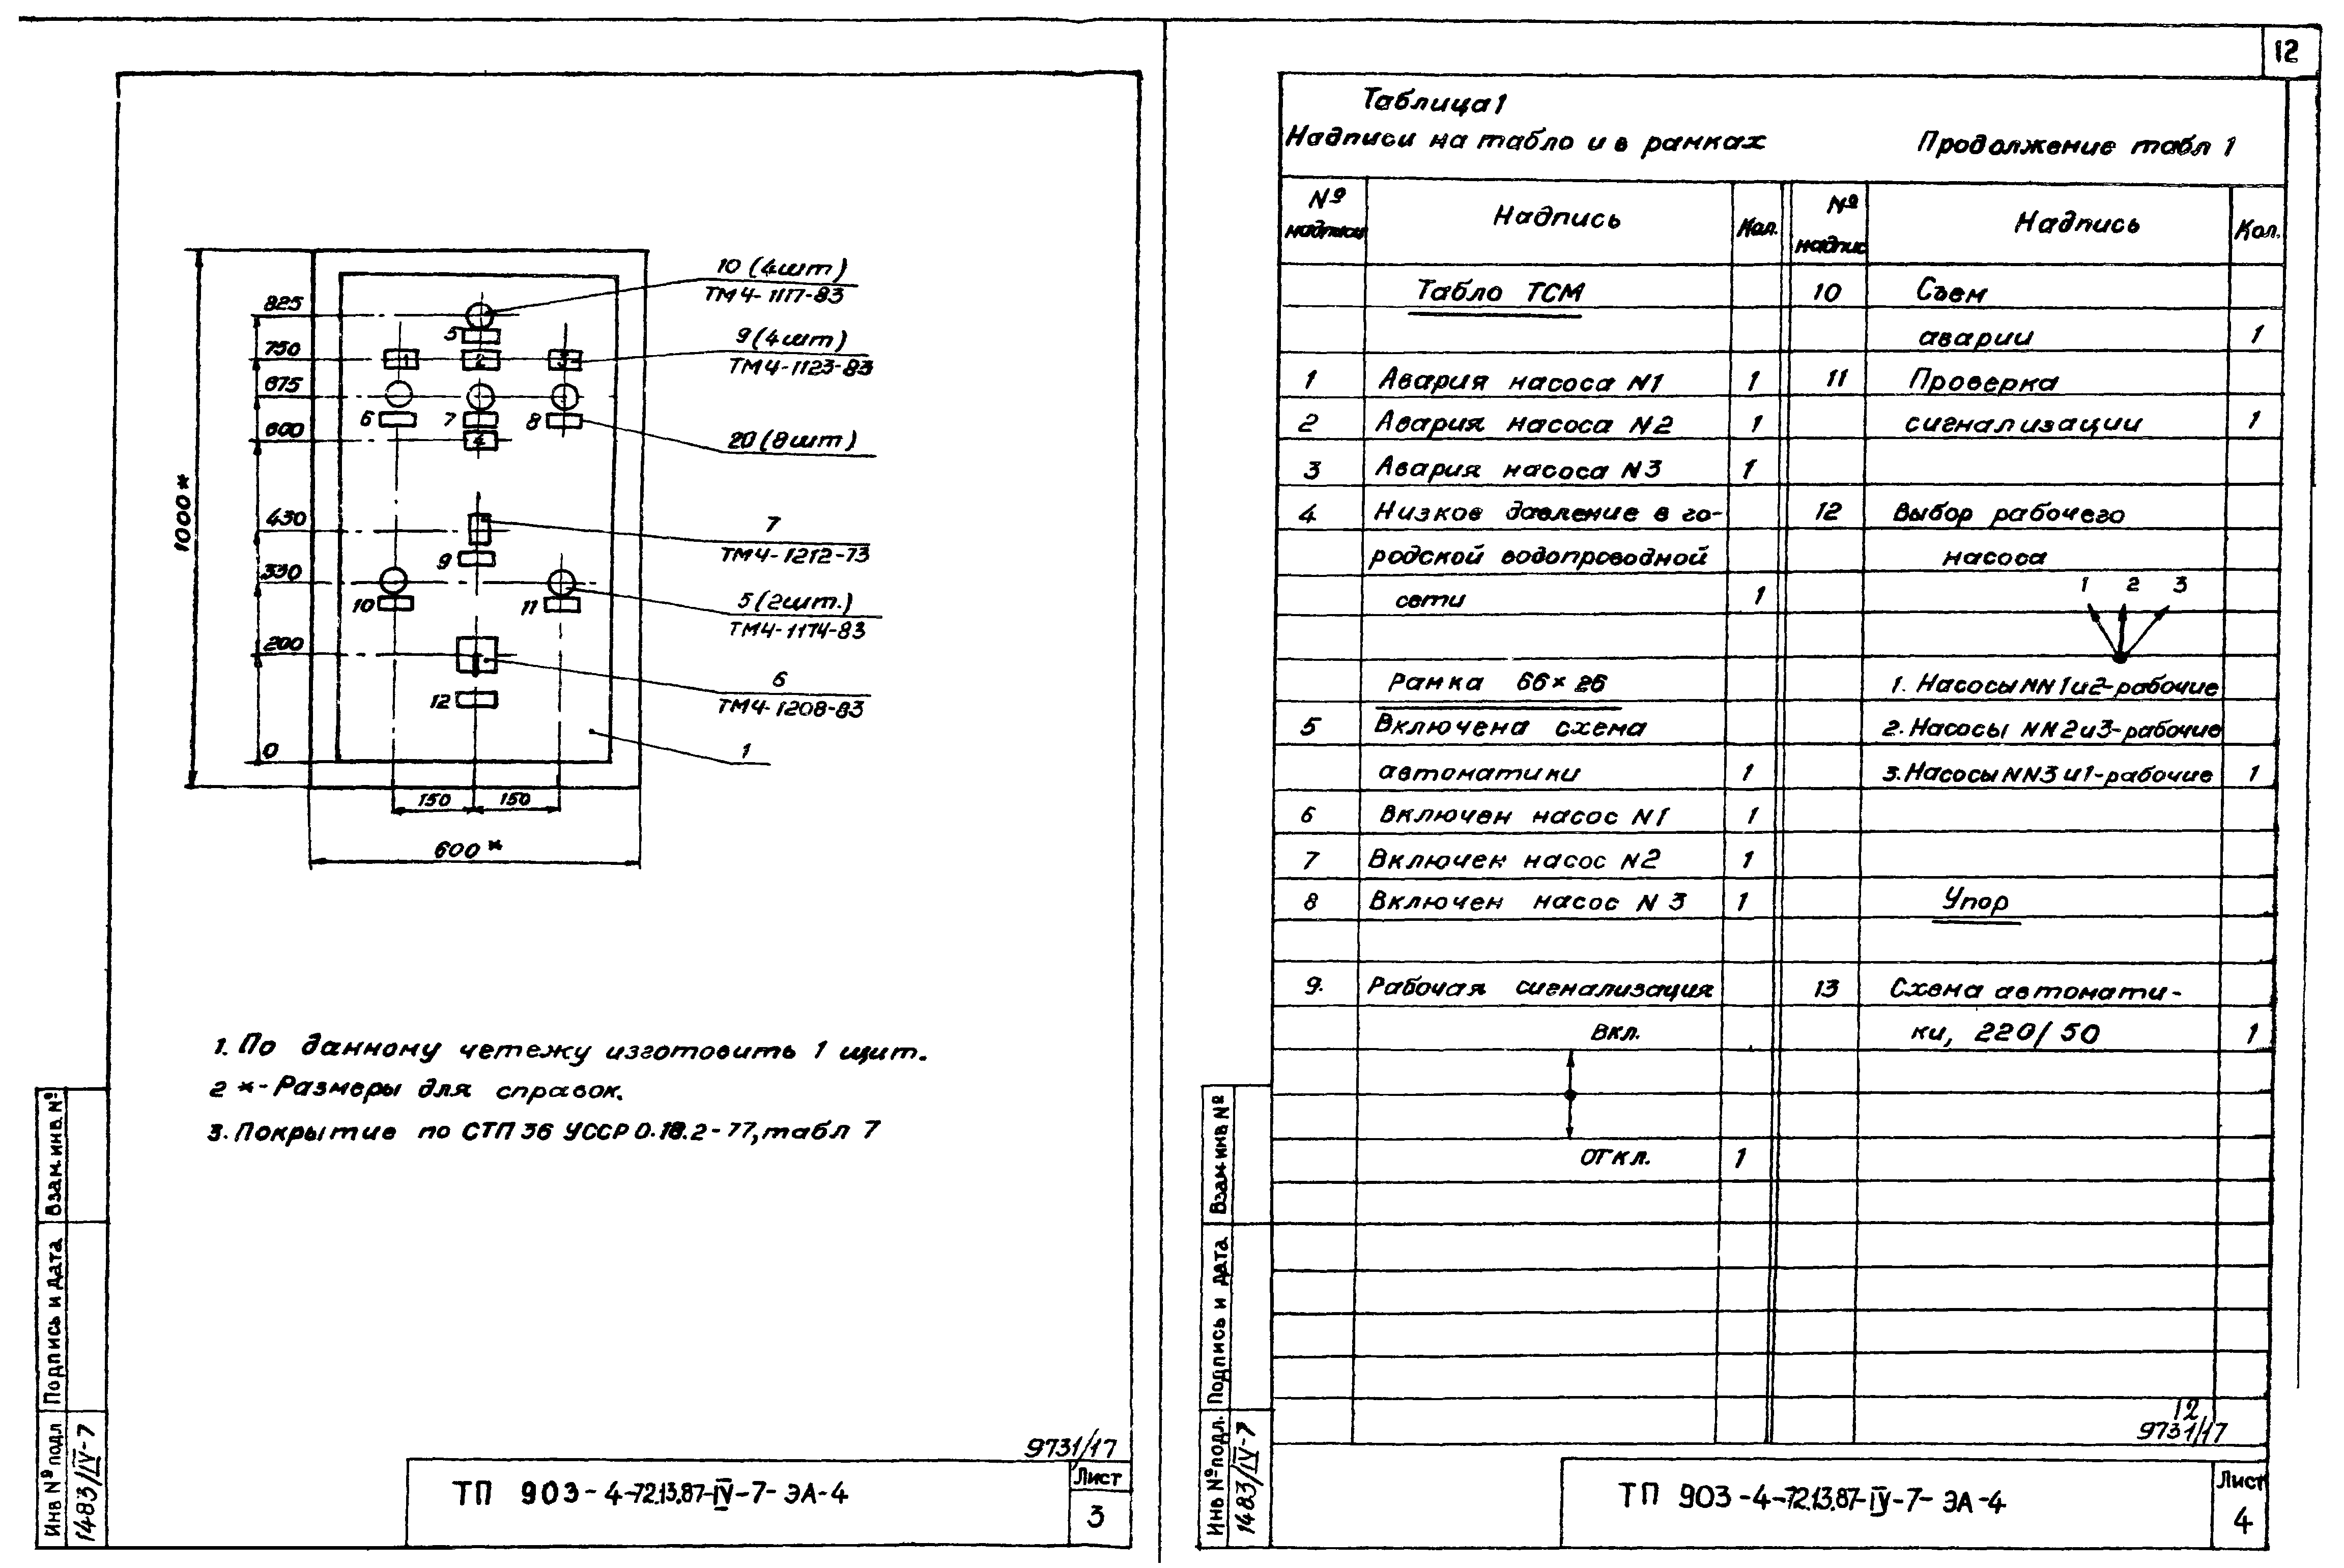 12
10 (4шт)
ТМ4-1117-83
825
5
9 (4шт)
ТМ4-1123-83
750
1 2 3
675
6 7 8
20 (8шт)
600
4
1000*
430
7
ТМ4-1212-73
9
330
5 (2шт.)
ТМ4-1174-83
10 11
200
6
ТМ4-1208-83
12
0
1
150 150
600*
1. По данному четежу изготовить 1 щит.
2 *- Размеры для справок.
3. Покрытие по СТП 36 УССР 0.18.2-77, табл 7
Инв № подл Подпись и дата Взам.инв.№
1483/IV-7
9731/17
ТП 903-4-72.13.87-IV-7-ЭА-4
Лист
3
Таблица 1
Надписи на табло и в рамках
Продолжение табл 1
№ надписи Надпись Кол. № надпис Надпись Кол.
Табло ТСМ 10 Съем
аварии 1
1 Авария насоса N1 1 11 Проверка
2 Авария насоса N2 1 сигнализации 1
3 Авария насоса N3 1
4 Низкое давление в го- 12 Выбор рабочего
родской водопроводной насоса
сети 1 1 2 3
Рамка 66×26 1. Насосы NN1и2-рабочие
5 Включена схема 2. Насосы NN2и3-рабочие
автоматики 1 3. Насосы NN3и1-рабочие 1
6 Включен насос N1 1
7 Включен насос N2 1
8 Включен насос N3 1 Упор
9. Рабочая сигнализация 13 Схема автомати-
Вкл. ки, 220/50 1
откл. 1
Инв №подл. Подпись и дата Взам.инв №
1483/IV-7
12
9731/17
ТП 903-4-72.13.87-IV-7-ЭА-4
Лист
4